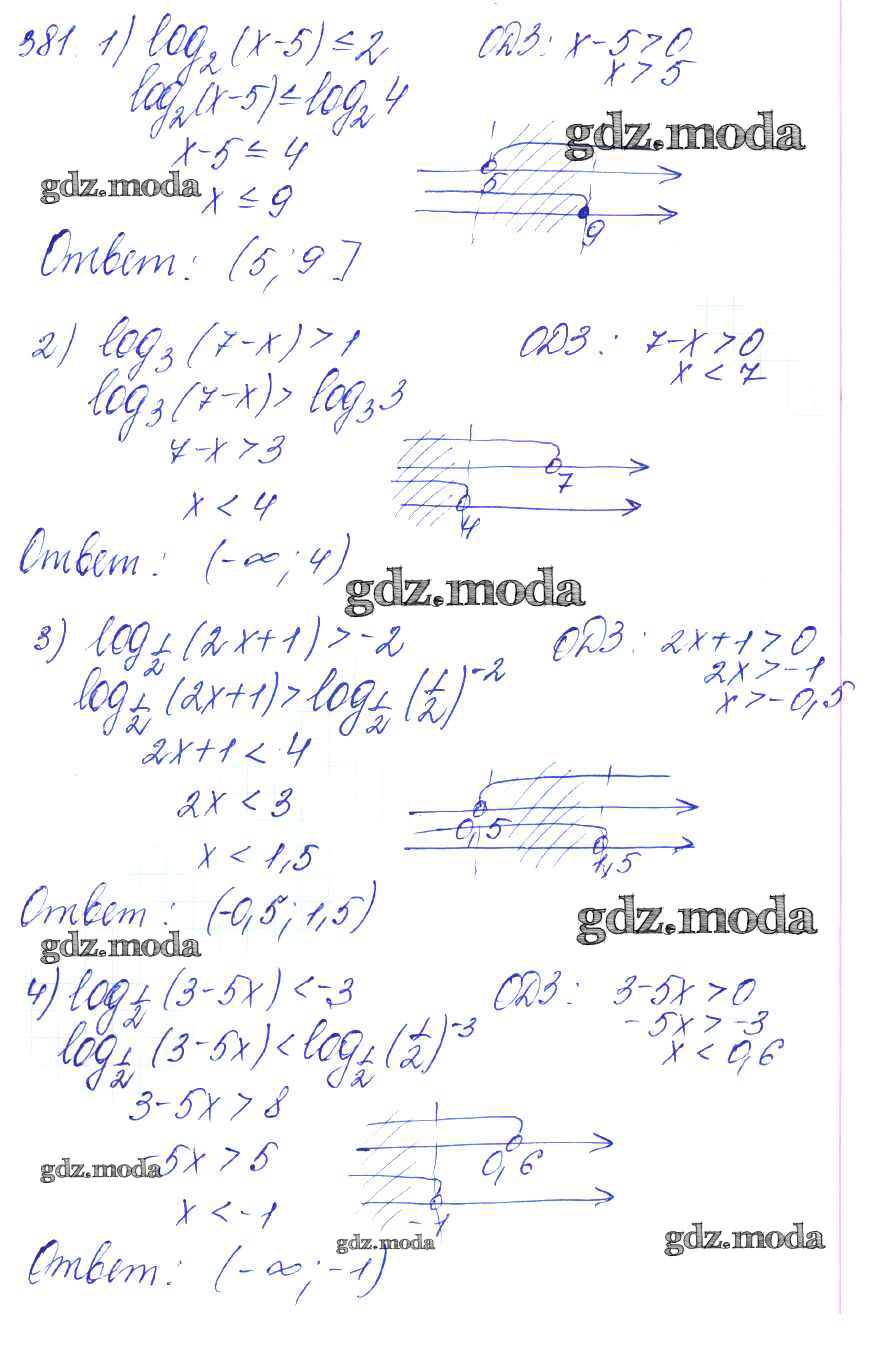 381. 1) log₂(x-5) ≤ 2 ОДЗ: x-5>0
log₂(x-5) ≤ log₂4 x>5
x-5 ≤ 4 gdz.moda
gdz.moda x ≤ 9
5
9
Ответ: (5; 9]
2) log₃(7-x)>1 ОДЗ: 7-x>0
log₃(7-x)> log₃3 x<7
7-x>3
7
x<4
4
Ответ: (-∞; 4)
gdz.moda
3) log_{1/2}(2x+1)>-2 ОДЗ: 2x+1>0
log_{1/2}(2x+1)>log_{1/2}(1/2)⁻² 2x>-1
x>-0,5
2x+1<4
2x<3
0,5
x<1,5 1,5
Ответ: (-0,5; 1,5)
gdz.moda gdz.moda
4) log_{1/2}(3-5x)<-3 ОДЗ: 3-5x>0
log_{1/2}(3-5x)<log_{1/2}(1/2)⁻³ -5x>-3
x<0,6
3-5x>8
gdz.moda -5x>5 0,6
x<-1 -1
gdz.moda gdz.moda
Ответ: (-∞; -1)